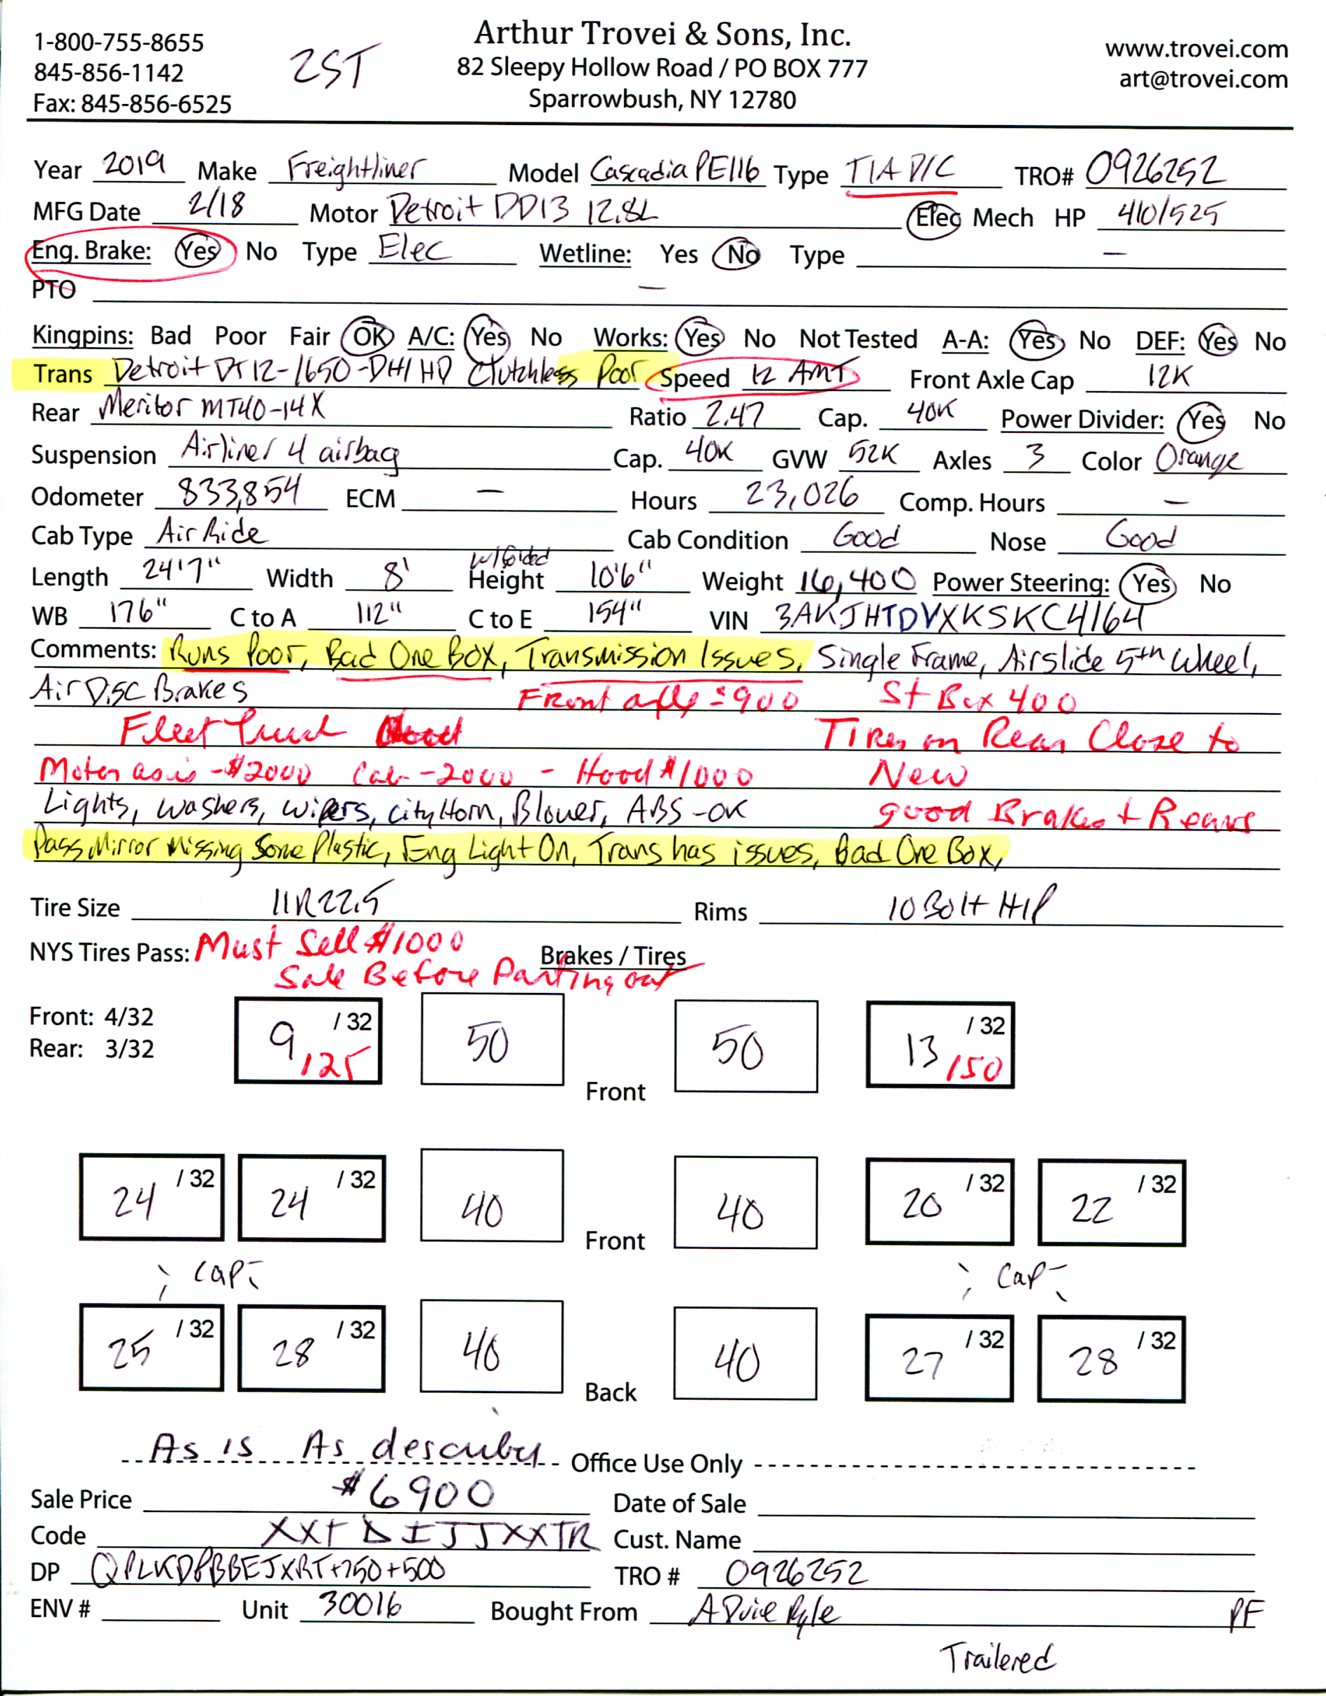 Arthur Trovei & Sons, Inc.
1-800-755-8655
845-856-1142
Fax: 845-856-6525
2ST
82 Sleepy Hollow Road / PO BOX 777
Sparrowbush, NY 12780
www.trovei.com
art@trovei.com
Year 2019 Make Freightliner Model Cascadia PE116 Type T/A D/C TRO# 0926252
MFG Date 2/18 Motor Detroit DD13 12.8L Elec Mech HP 410/525
Eng. Brake: Yes No Type Elec Wetline: Yes No Type —
PTO —
Kingpins: Bad Poor Fair OK A/C: Yes No Works: Yes No Not Tested A-A: Yes No DEF: Yes No
Trans Detroit DT12-1650-DH/HD Clutchless Poor Speed 12 AMT Front Axle Cap 12K
Rear Meritor MT40-14X Ratio 2.47 Cap. 40K Power Divider: Yes No
Suspension Airliner 4 airbag Cap. 40K GVW 52K Axles 3 Color Orange
Odometer 833,854 ECM — Hours 23,026 Comp. Hours —
Cab Type Air Ride Cab Condition Good Nose Good
Length 24'7" Width 8' w/folded Height 10'6" Weight 16,400 Power Steering: Yes No
WB 176" C to A 112" C to E 154" VIN 3AKJHTDVXKSKC4164
Comments: Runs Poor, Bad One Box, Transmission Issues, Single Frame, Airslide 5th Wheel,
Air Disc Brakes Front axle = 900 St Box 400
Fleet Truck Tires on Rear Close to
Motor as is - $2000 Cab - 2000 - Hood $1000 New
Lights, Washers, Wipers, City Horn, Blower, ABS - OK good Brakes + Rears
Pass Mirror Missing Some Plastic, Eng Light On, Trans has issues, Bad One Box,
Tire Size 11R22.5 Rims 10 Bolt H/P
NYS Tires Pass: Must Sell $1000 Brakes / Tires
Sale Before Parting out
Front: 4/32
Rear: 3/32
9 /32 125 50 Front 50 13 /32 150
24 /32 24 /32 40 Front 40 20 /32 22 /32
Cap Cap
25 /32 28 /32 40 Back 40 27 /32 28 /32
As is As describe Office Use Only
Sale Price $6900 Date of Sale
Code Cust. Name
DP TRO # 0926252
ENV # Unit 30016 Bought From PF
Trailered